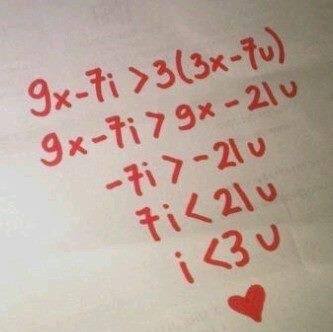 9x-7i > 3(3x-7u)
9x-7i > 9x-21u
-7i > -21u
7i < 21u
i < 3u